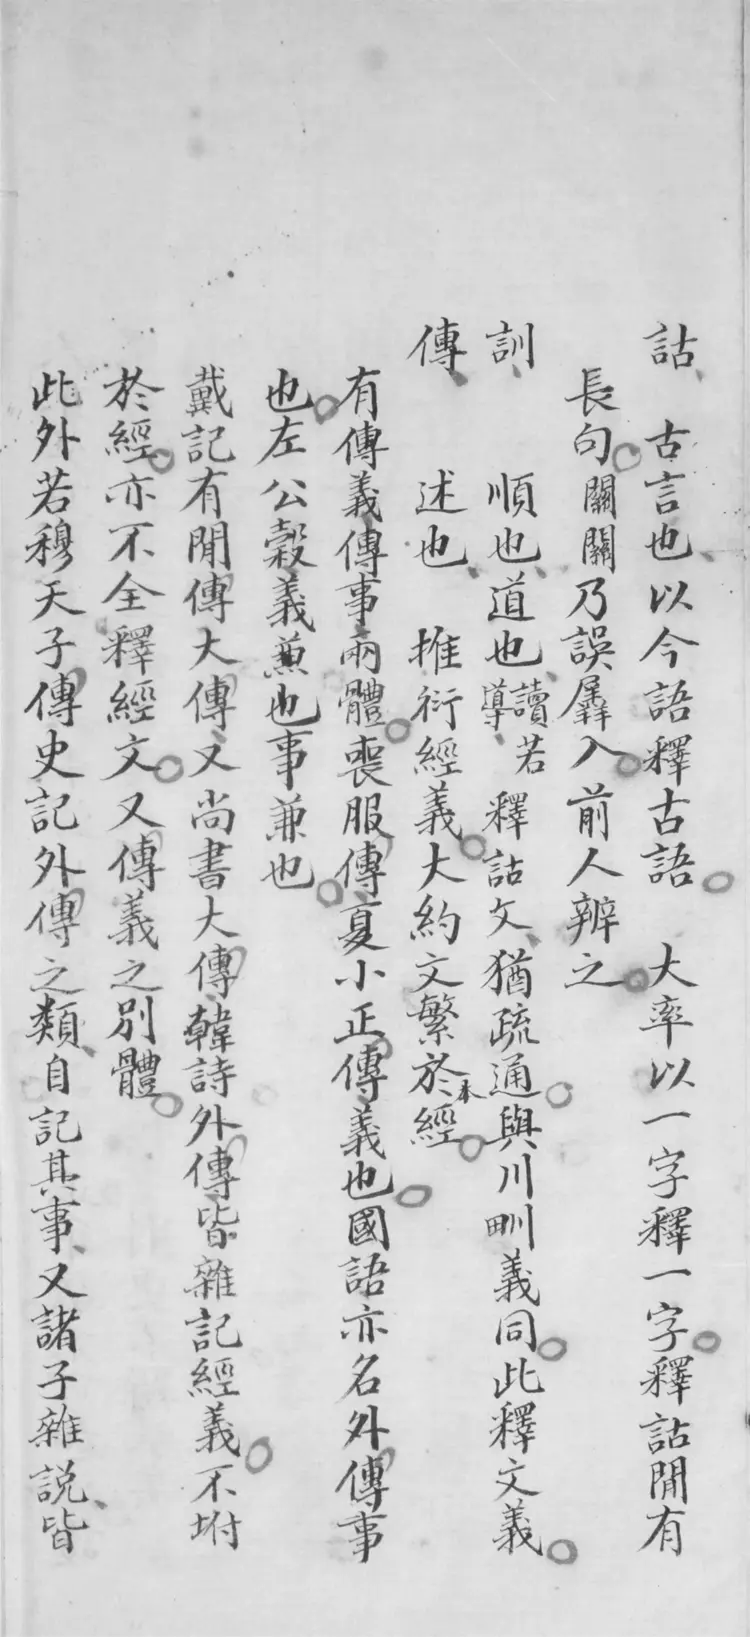 詁　古言也以今語釋古語　大率以一字釋一字釋詁閒有
長句關關乃誤羼入前人辨之
訓　順也道也讀若導釋詁文猶疏通與川甽義同此釋文義
傳　述也　推衍經義大約文繁於本經
有傳義傳事兩體喪服傳夏小正傳義也國語亦名外傳事
也左公穀義兼也事兼也
戴記有閒傳大傳又尚書大傳韓詩外傳皆雜記經義不坿
於經亦不全釋經文又傳義之別體
此外若穆天子傳史記外傳之類自記其事又諸子雜説皆